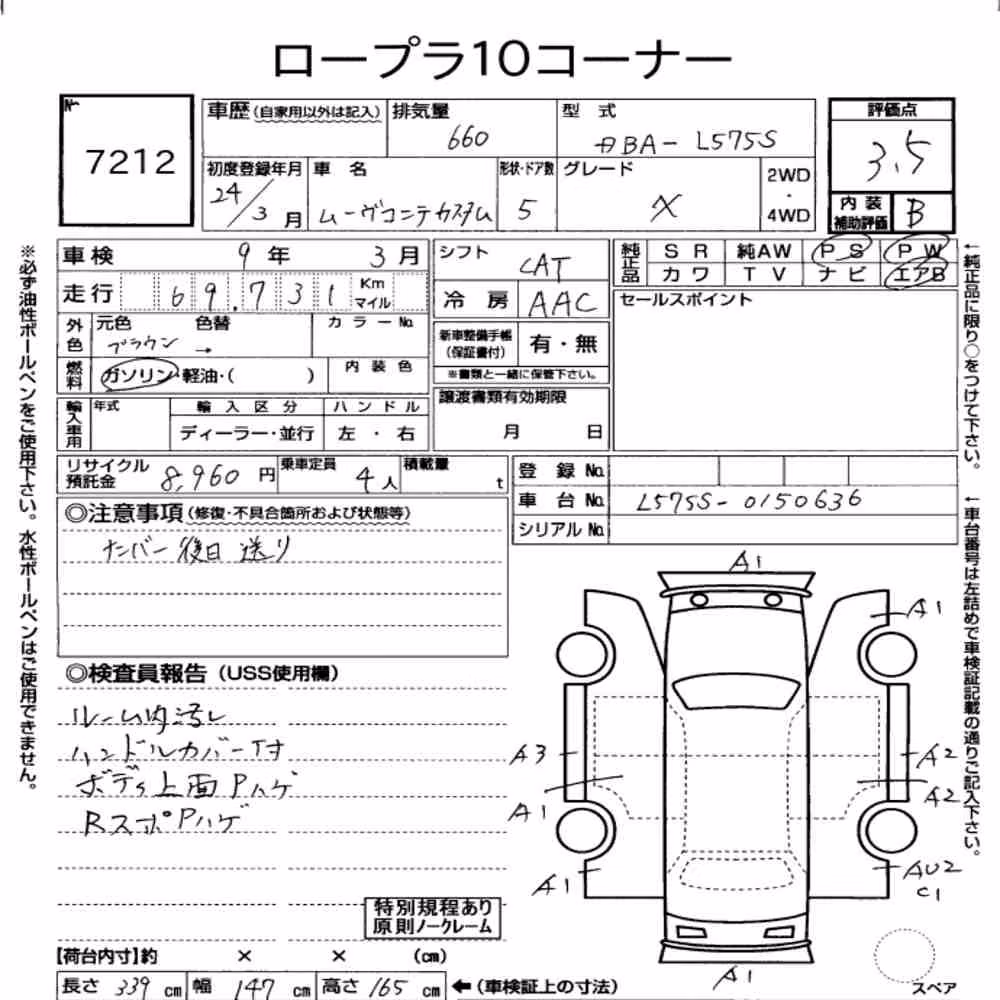 ロープラ10コーナー
No
7212
車歴(自家用以外は記入) 排気量 660 型 式 DBA-L575S
評価点
3.5
初度登録年月 24/3月 車 名 ムーヴコンテカスタム 形状・ドア数 5 グレード X 2WD・4WD
内装補助評価 B
車検 9年 3月
シフト CAT
純正品 SR 純AW PS PW
カワ TV ナビ エアB
走行 69,731 Km マイル
冷房 AAC
セールスポイント
外色 元色 ブラウン 色替 → カラーNo.
新車整備手帳(保証書付) 有・無
※書類と一緒に保管下さい。
燃料 ガソリン・軽油・( ) 内装色
譲渡書類有効期限
月 日
輸入車用 年式 輸入区分 ハンドル
ディーラー・並行 左・右
リサイクル預託金 8,960円 乗車定員 4人 積載量 t
登録No.
車台No. L575S-0150636
シリアルNo.
◎注意事項(修復・不具合箇所および状態等)
ナンバー後日送り
◎検査員報告(USS使用欄)
ルーム内汚レ
ハンドルカバー付
ボディ上面Pハゲ
RスポPハゲ
特別規程あり
原則ノークレーム
A1
A1
A3
A2
A1
A2
A1
AU2
C1
A1
スペア
【荷台内寸】約 × × (cm)
長さ 339 cm 幅 147 cm 高さ 165 cm ←(車検証上の寸法)
※必ず油性ボールペンをご使用下さい。水性ボールペンはご使用できません。
←純正品に限り○をつけて下さい。
←車台番号は左詰めで車検証記載の通りご記入下さい。